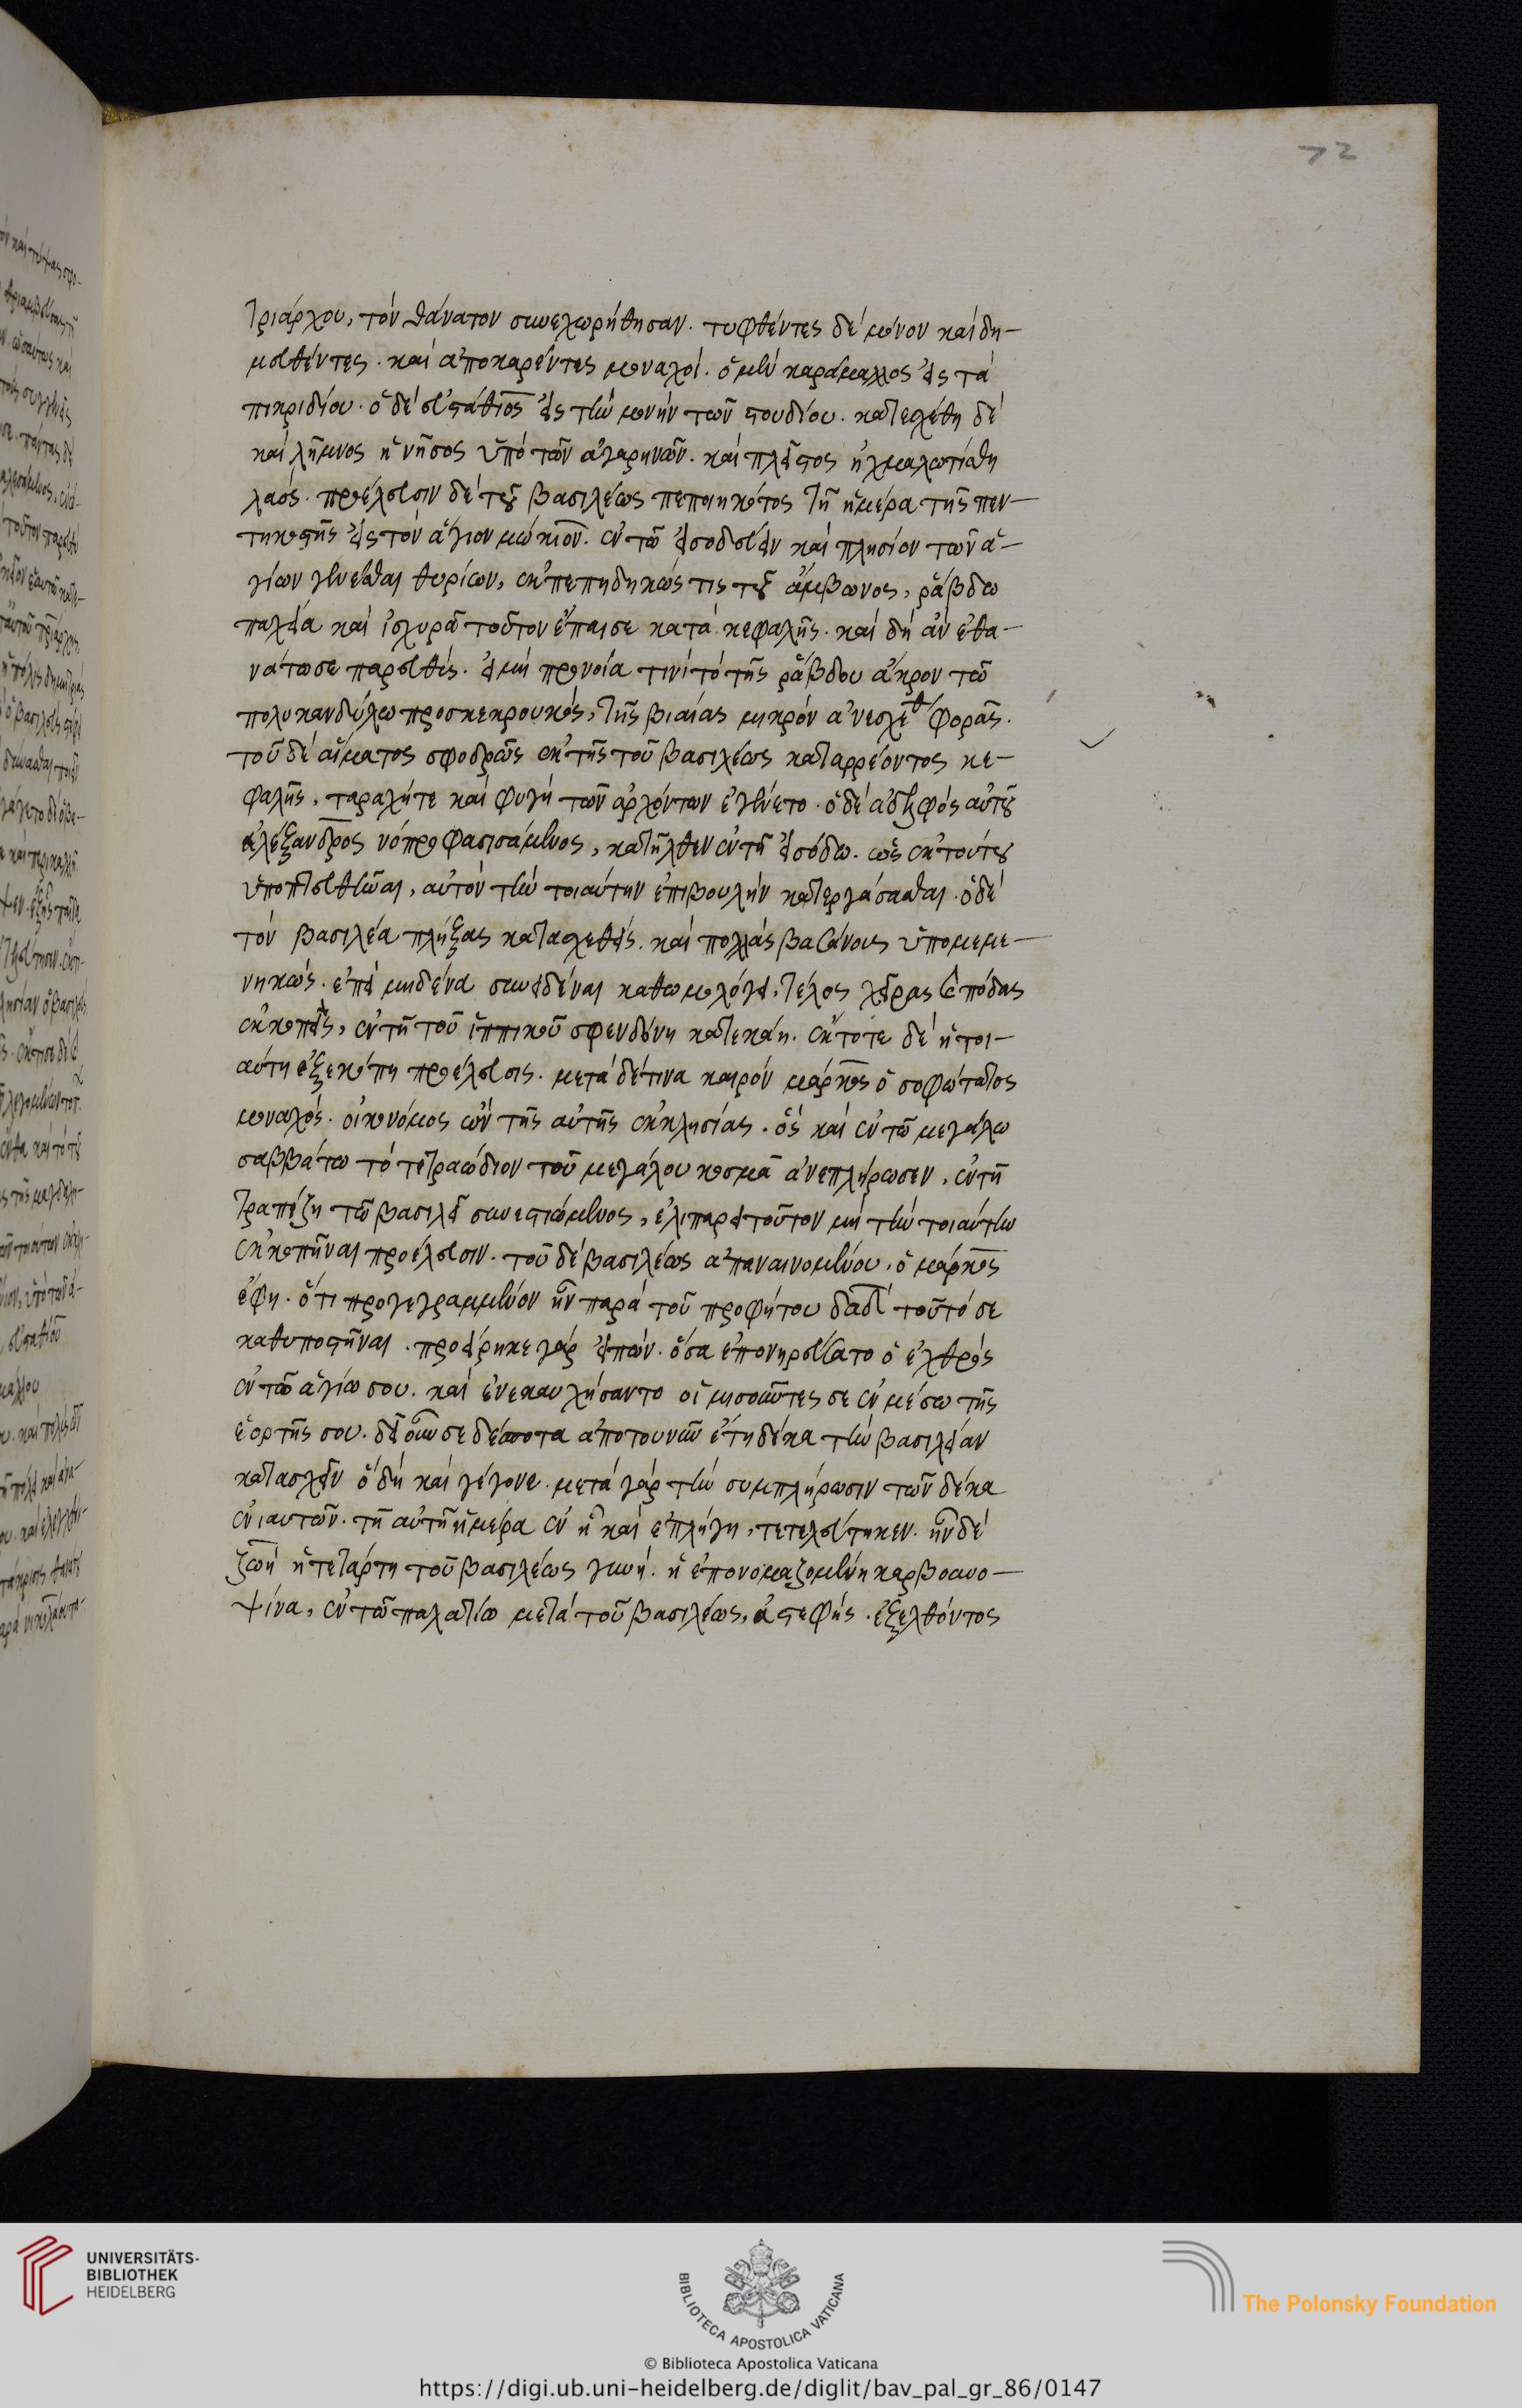 72
τριάρχου, τὸν θάνατον συνεχωρήθησαν. τυφθέντες δὲ μόνον καὶ δη-
μευθέντες. καὶ ἀποκαρέντες μοναχοί. ὁ μὲν καράμαλλος εἰς τὰ
πικριδίου. ὁ δὲ εὐστάθιος εἰς τὴν μονὴν τῶν στουδίου. κατεσχέθη δὲ
καὶ λῆμνος ἡ νῆσος ὑπὸ τῶν ἀγαρηνῶν. καὶ πλεῖστος ἠχμαλωτίσθη
λαός. προέλευσιν δὲ τοῦ βασιλέως πεποιηκότος τῇ ἡμέρα τῆς πεν-
τηκοστῆς εἰς τὸν ἅγιον μώκιον. ἐν τῶ εἰσοδεύειν καὶ πλησίον τῶν ἁ-
γίων γενέσθαι θυρίων, ἐκπεπηδηκώς τις τοῦ ἄμβωνος, ῥάβδω
παχεία καὶ ἰσχυρᾶ τοῦτον ἔπαισε κατὰ κεφαλῆς. καὶ δὴ ἂν ἐθα-
νάτωσε παρευθύς. εἰ μὴ προνοία τινὶ τὸ τῆς ῥάβδου ἄκρον τῶ
πολυκανδήλω προσκεκρουκός, τῆς βιαίας μικρὸν ἀνεσχέθ φορᾶς.
τοῦ δὲ αἵματος σφοδρῶς ἐκ τῆς τοῦ βασιλέως καταρρέοντος κε-
φαλῆς, ταραχή τε καὶ φυγὴ τῶν ἀρχόντων ἐγένετο. ὁ δὲ ἀδελφὸς αὐτοῦ
ἀλέξανδρος νό προφασισάμενος, κατῆλθεν ἐν τῇ εἰσόδω. ὡς ἐκ τούτου
ὑποπτευθῆναι, αὐτὸν τὴν τοιαύτην ἐπιβουλὴν κατεργάσασθαι. ὁ δὲ
τὸν βασιλέα πλήξας κατασχεθείς. καὶ πολλὰς βασάνους ὑπομεμε-
νηκώς. ἐπεὶ μηδένα συνειδέναι καθωμολόγει, τέλος χεῖρας καὶ πόδας
ἐκκοπείς, ἐν τῇ τοῦ ἱππικοῦ σφενδόνη κατεκάη. ἔκτοτε δὲ ἡ τοι-
αύτη ἐξεκόπη προέλευσις. μετὰ δέ τινα καιρὸν μάρκος ὁ σοφώτατος
μοναχός. οἰκονόμος ὢν τῆς αὐτῆς ἐκκλησίας. ὃς καὶ ἐν τῶ μεγάλω
σαββάτω τὸ τετραώδιον τοῦ μεγάλου κοσμᾶ ἀνεπλήρωσεν, ἐν τῇ
τραπέζη τῶ βασιλεῖ συνεστιώμενος, ἐλιπάρει τοῦτον μὴ τὴν τοιαύτην
ἐκκοπῆναι προέλευσιν. τοῦ δὲ βασιλέως ἀπαναινομένου, ὁ μάρκος
ἔφη. ὅτι προγεγραμμένον ἦν παρὰ τοῦ προφήτου δαδ τοῦτό σε
καθυποστῆναι. προείρηκε γὰρ εἰπών. ὅσα ἐπονηρεύσατο ὁ ἐχθρὸς
ἐν τῶ ἁγίω σου. καὶ ἐνεκαυχήσαντο οἱ μισοῦντες σε ἐν μέσω τῆς
ἑορτῆς σου. δεῖ οὖν σε δέσποτα ἀπὸ τοῦ νῦν ἔτη δέκα τὴν βασιλείαν
κατασχεῖν ὃ δὴ καὶ γέγονε. μετὰ γὰρ τὴν συμπλήρωσιν τῶν δέκα
ἐνιαυτῶν. τῇ αὐτῇ ἡμέρα ἐν ἧ καὶ ἐπλήγη, τετελεύτηκεν. ἦν δὲ
ζωὴ ἡ τετάρτη τοῦ βασιλέως γυνή. ἡ ἐπονομαζομένη καρβουνο-
ψίνα, ἐν τῶ παλατίω μετὰ τοῦ βασιλέως, ἀστεφής. ἐξελθόντος
UNIVERSITÄTS-
BIBLIOTHEK
HEIDELBERG
BIBLIOTECA APOSTOLICA VATICANA
The Polonsky Foundation
© Biblioteca Apostolica Vaticana
https://digi.ub.uni-heidelberg.de/diglit/bav_pal_gr_86/0147